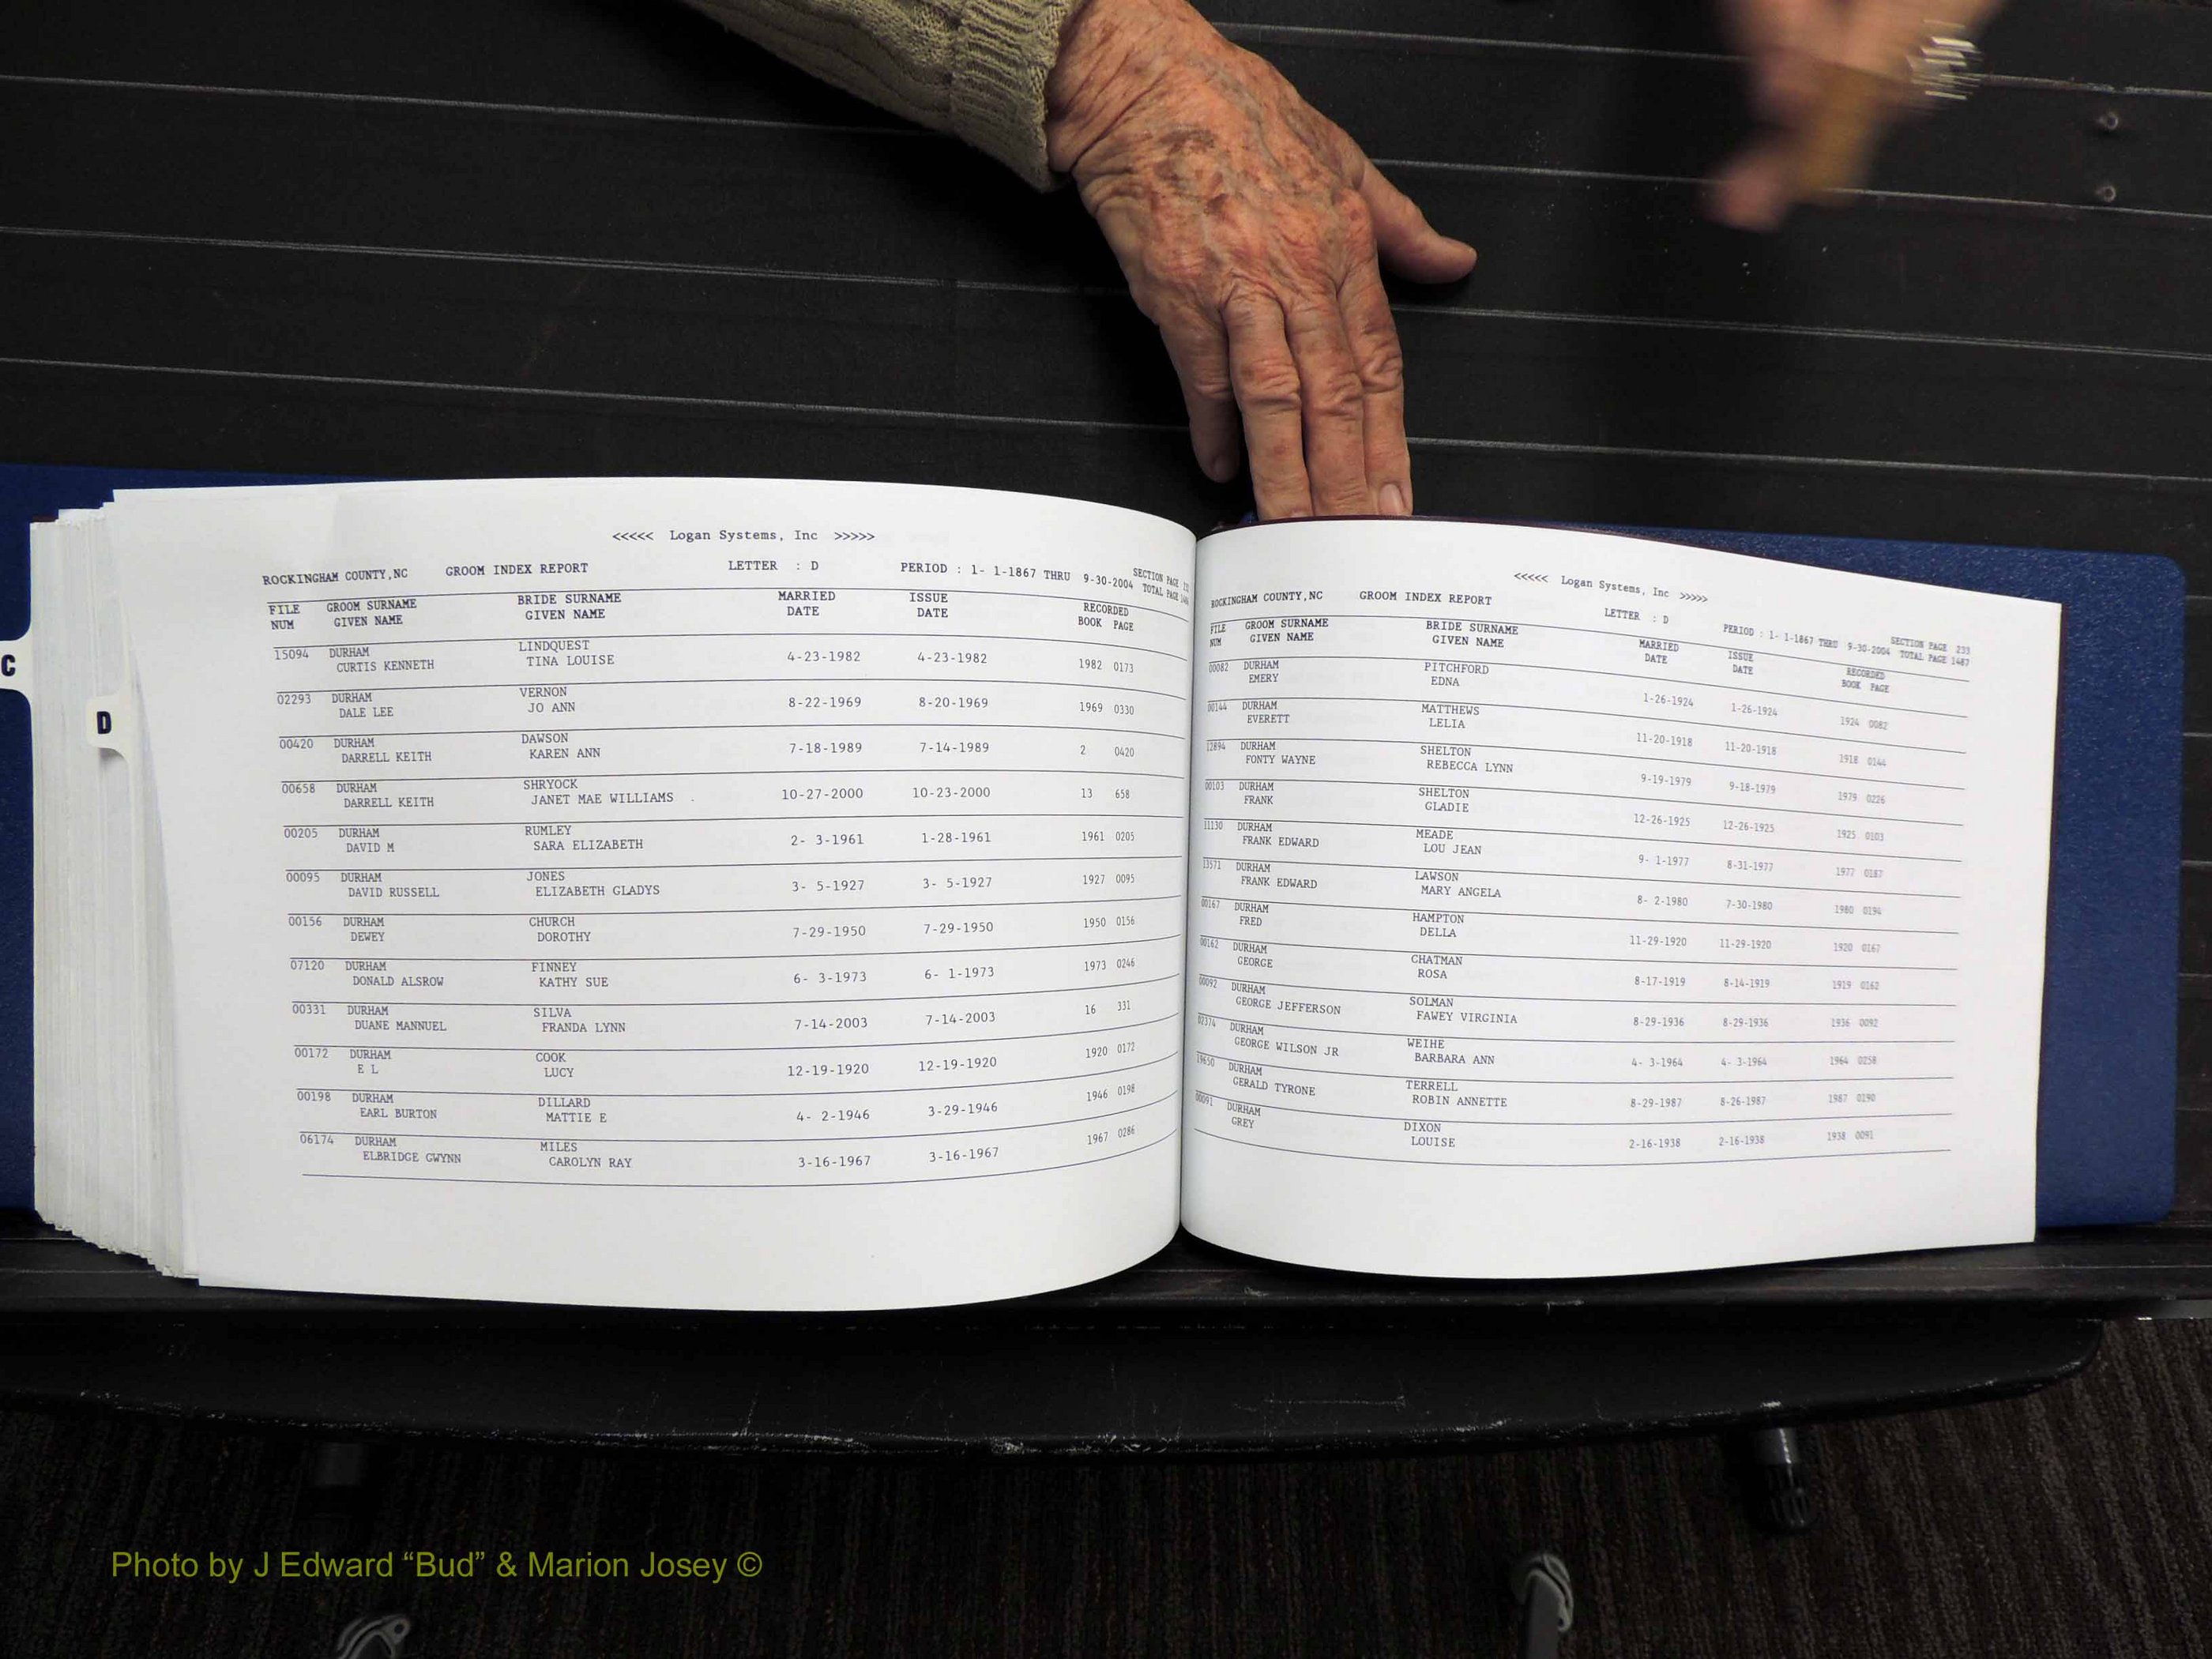 C
D
<<<<< Logan Systems, Inc >>>>>
ROCKINGHAM COUNTY,NC GROOM INDEX REPORT LETTER : D PERIOD : 1- 1-1867 THRU 9-30-2004 SECTION PAGE
TOTAL PAGE
FILE GROOM SURNAME BRIDE SURNAME MARRIED ISSUE RECORDED
NUM GIVEN NAME GIVEN NAME DATE DATE BOOK PAGE
15094 DURHAM LINDQUEST 4-23-1982 4-23-1982 1982 0173
CURTIS KENNETH TINA LOUISE
02293 DURHAM VERNON 8-22-1969 8-20-1969 1969 0330
DALE LEE JO ANN
00420 DURHAM DAWSON 7-18-1989 7-14-1989 2 0420
DARRELL KEITH KAREN ANN
00658 DURHAM SHRYOCK 10-27-2000 10-23-2000 13 658
DARRELL KEITH JANET MAE WILLIAMS .
00205 DURHAM RUMLEY 2- 3-1961 1-28-1961 1961 0205
DAVID M SARA ELIZABETH
00095 DURHAM JONES 3- 5-1927 3- 5-1927 1927 0095
DAVID RUSSELL ELIZABETH GLADYS
00156 DURHAM CHURCH 7-29-1950 7-29-1950 1950 0156
DEWEY DOROTHY
07120 DURHAM FINNEY 6- 3-1973 6- 1-1973 1973 0246
DONALD ALSROW KATHY SUE
00331 DURHAM SILVA 7-14-2003 7-14-2003 16 331
DUANE MANNUEL FRANDA LYNN
00172 DURHAM COOK 12-19-1920 12-19-1920 1920 0172
E L LUCY
00198 DURHAM DILLARD 4- 2-1946 3-29-1946 1946 0198
EARL BURTON MATTIE E
06174 DURHAM MILES 3-16-1967 3-16-1967 1967 0286
ELBRIDGE GWYNN CAROLYN RAY
<<<<< Logan Systems, Inc >>>>>
ROCKINGHAM COUNTY,NC GROOM INDEX REPORT LETTER : D PERIOD : 1- 1-1867 THRU 9-30-2004 SECTION PAGE 233
TOTAL PAGE 1487
FILE GROOM SURNAME BRIDE SURNAME MARRIED ISSUE RECORDED
NUM GIVEN NAME GIVEN NAME DATE DATE BOOK PAGE
00082 DURHAM PITCHFORD 1-26-1924 1-26-1924 1924 0082
EMERY EDNA
00144 DURHAM MATTHEWS 11-20-1918 11-20-1918 1918 0144
EVERETT LELIA
12894 DURHAM SHELTON 9-19-1979 9-18-1979 1979 0226
FONTY WAYNE REBECCA LYNN
00103 DURHAM SHELTON 12-26-1925 12-26-1925 1925 0103
FRANK GLADIE
11130 DURHAM MEADE 9- 1-1977 8-31-1977 1977 0187
FRANK EDWARD LOU JEAN
13571 DURHAM LAWSON 8- 2-1980 7-30-1980 1980 0194
FRANK EDWARD MARY ANGELA
00167 DURHAM HAMPTON 11-29-1920 11-29-1920 1920 0167
FRED DELLA
00162 DURHAM CHATMAN 8-17-1919 8-14-1919 1919 0162
GEORGE ROSA
00092 DURHAM SOLMAN 8-29-1936 8-29-1936 1936 0092
GEORGE JEFFERSON FAWEY VIRGINIA
02374 DURHAM WEIHE 4- 3-1964 4- 3-1964 1964 0258
GEORGE WILSON JR BARBARA ANN
19650 DURHAM TERRELL 8-29-1987 8-26-1987 1987 0190
GERALD TYRONE ROBIN ANNETTE
00091 DURHAM DIXON 2-16-1938 2-16-1938 1938 0091
GREY LOUISE
Photo by J Edward “Bud” & Marion Josey ©